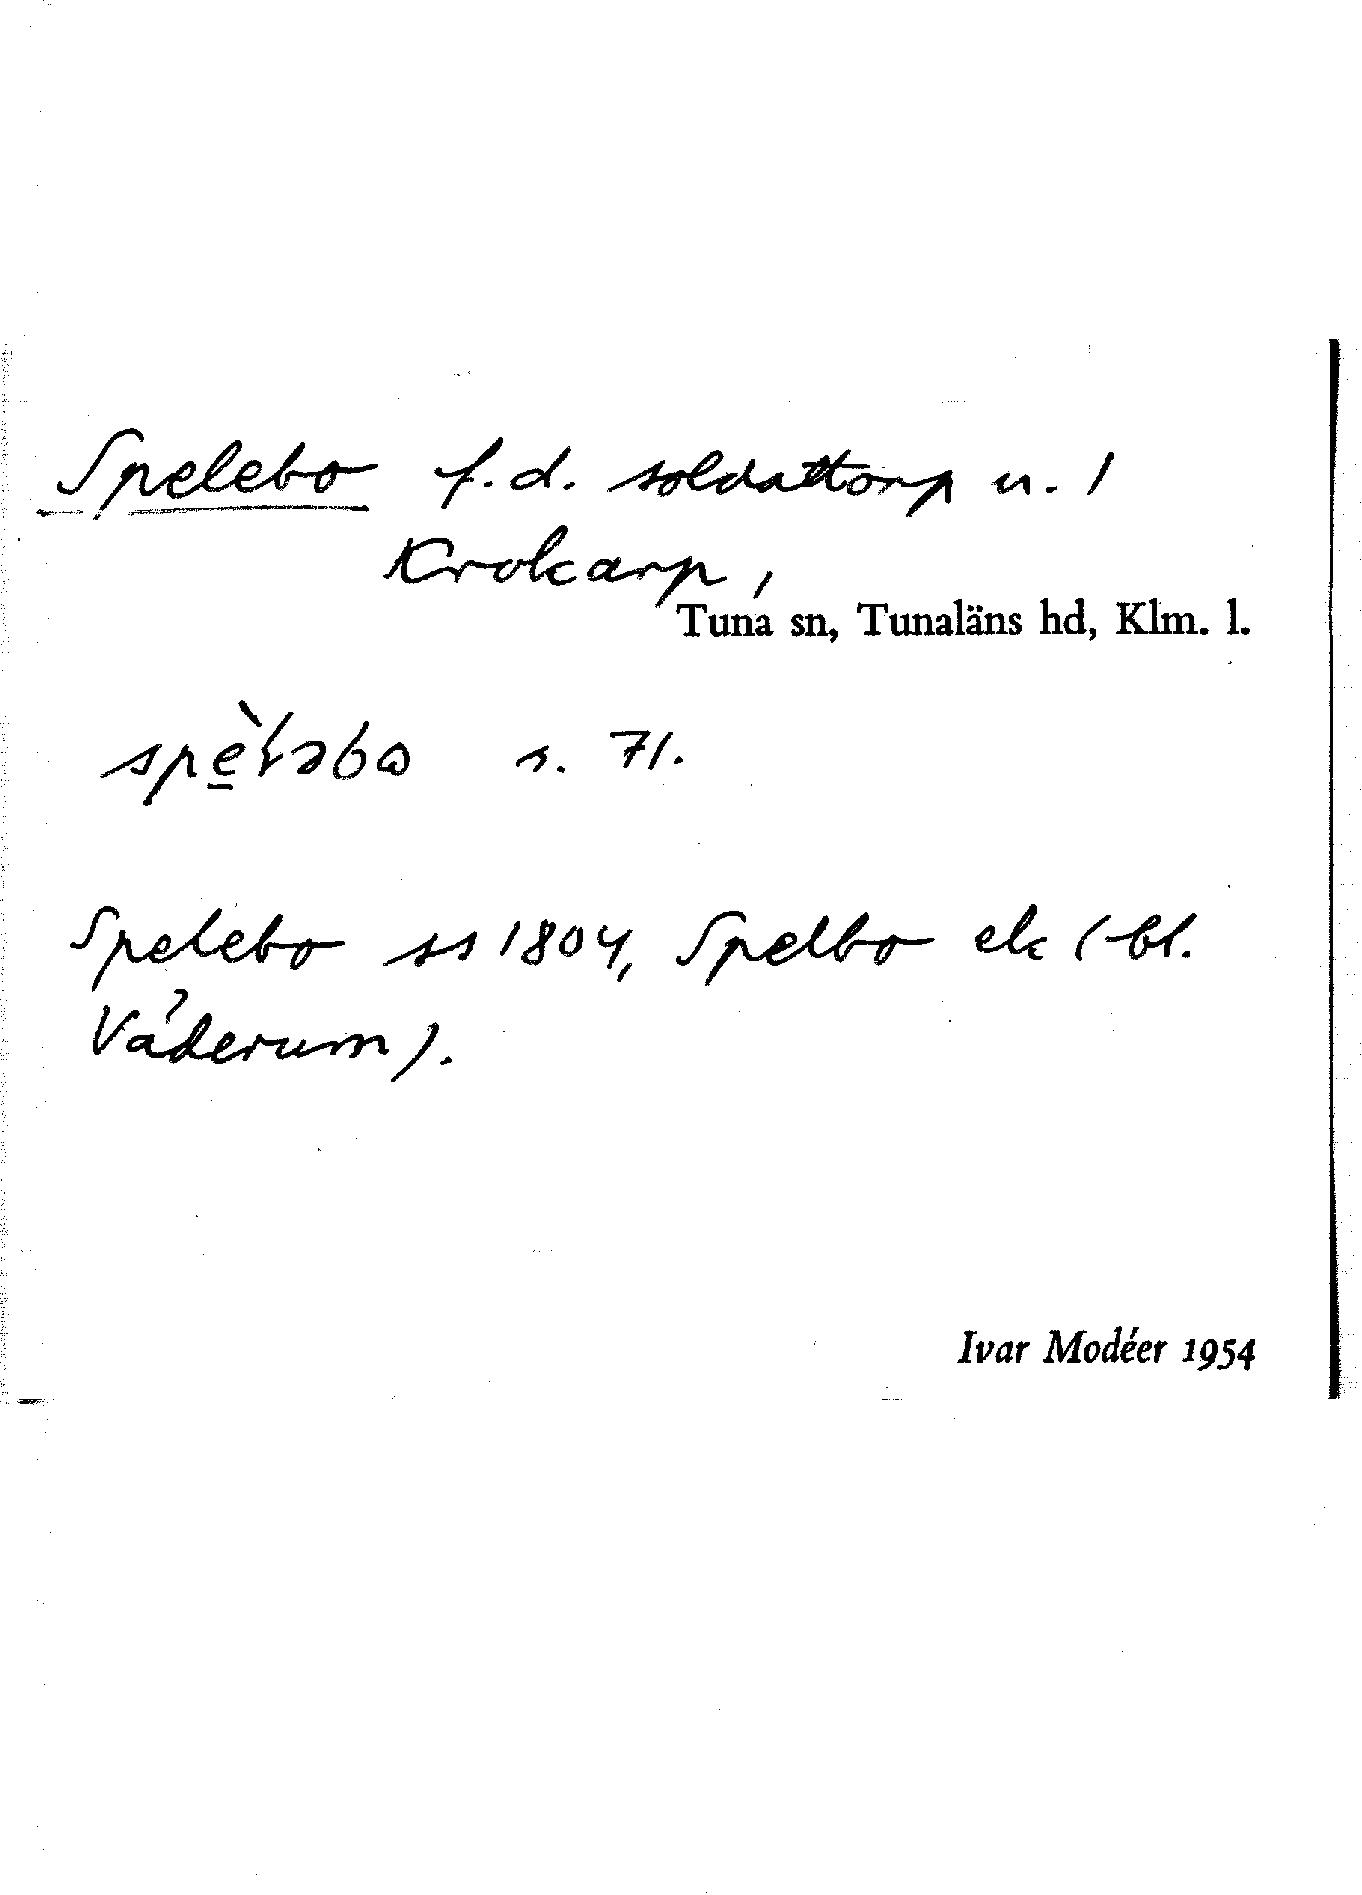 Spelebo f.d. soldattorp u. 1
Krokarp,
Tuna sn, Tunaläns hd, Klm. l.
s. 71.
Spelebo ss 1804, Spelbo ek (bl.
Våderum).
Ivar Modéer 1954